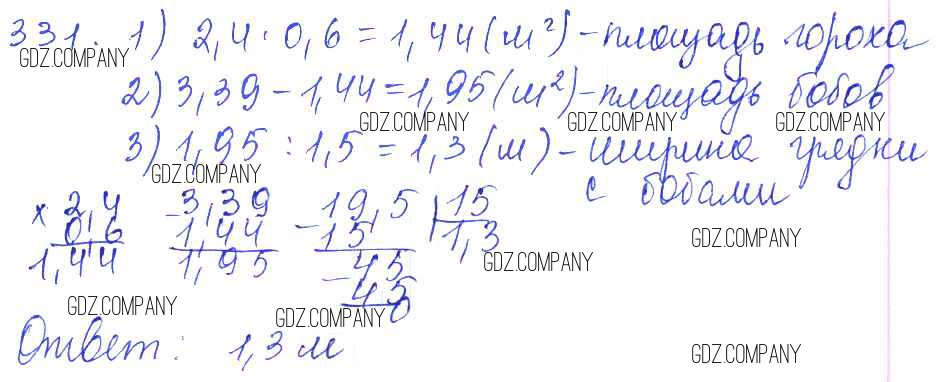 331. 1) 2,4 · 0,6 = 1,44 (м²) - площадь гороха
GDZ.COMPANY
2) 3,39 - 1,44 = 1,95 (м²) - площадь бобов
GDZ.COMPANY GDZ.COMPANY GDZ.COMPANY
3) 1,95 : 1,5 = 1,3 (м) - ширина грядки
GDZ.COMPANY
с бобами
× 2,4 - 3,39 - 19,5 | 15
0,6 1,44 15 1,3
1,44 1,95 - 45
GDZ.COMPANY
GDZ.COMPANY
45
0
GDZ.COMPANY GDZ.COMPANY
Ответ: 1,3 м
GDZ.COMPANY